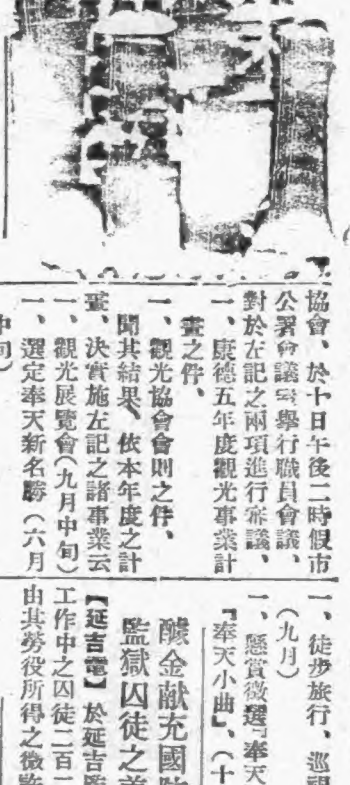 協會、於十日午後二時假市
公署會議室舉行職員會議、
對於左記之兩項進行審議、
一、康德五年度觀光事業計
畫之件、
一、觀光協會會則之件、
聞其結果、依本年度之計
畫、決實施左記之諸事業云
一、觀光展覽會(九月中旬)
一、選定奉天新名勝(六月
中旬)
一、徒步旅行、巡
(九月)
一、懸賞徵選「奉天
『奉天小曲』、(十
醵金献充國
監獄囚徒之
【延吉電】於延吉監
工作中之囚徒二百
由其勞役所得之微